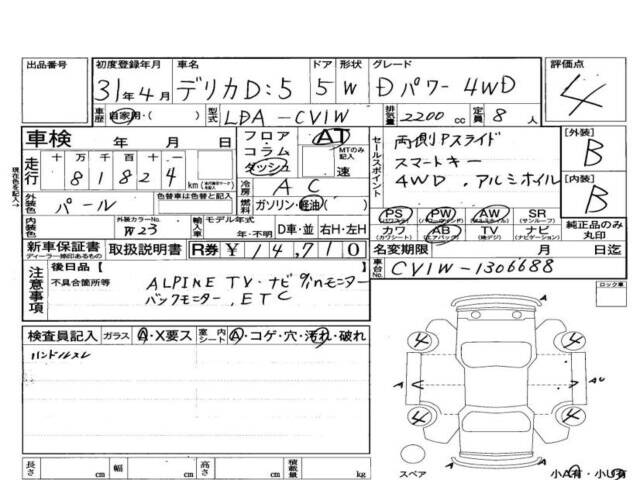 出品番号
初度登録年月 車名 ドア 形状 グレード 評価点
31年4月 デリカD:5 5 W Dパワー 4WD 4
車歴 自家用・( ) 型式 LDA-CV1W 排気量 2200 cc 定員 8人
車検 年 月 日
フロア・コラム ダッシュ AT MTのみ記入 速
走行 十 万 千 百 十 一
8 1 8 2 4 km
現在色を記入→
冷房 AC
燃料 ガソリン・軽油( )
外装色 パール 色替車は色替と記入
内装色 外装カラーNo. W23 輸入車 モデル年式 年・不明 D車・並 右H・左H
セールスポイント 両側Pスライド
スマートキー
4WD.アルミホイル
[外装] B
[内装] B
PS PW AW SR
(パワステ) (サンルーフ)
カワ AB TV ナビ
(カワシート) (エアバック) (地デジ) (ナビゲーション)
純正品のみ丸印
新車保証書 取扱説明書 R券 ¥14,710
ディーラー捺印あるもの
名変期限 月 日迄
車台No. CV1W-1306688
注意事項 後日品【 】
不具合箇所等 ALPINE TV・ナビ
バックモニター, ETC
ロック車
検査員記入 ガラス A・X要ス 室内シート A・コゲ・穴・汚れ・破れ
ハンドルスレ
A
4 4
A A
4 4
A
スペア
小A有・小U有
長さ cm 幅 cm 高さ cm 積載量 kg